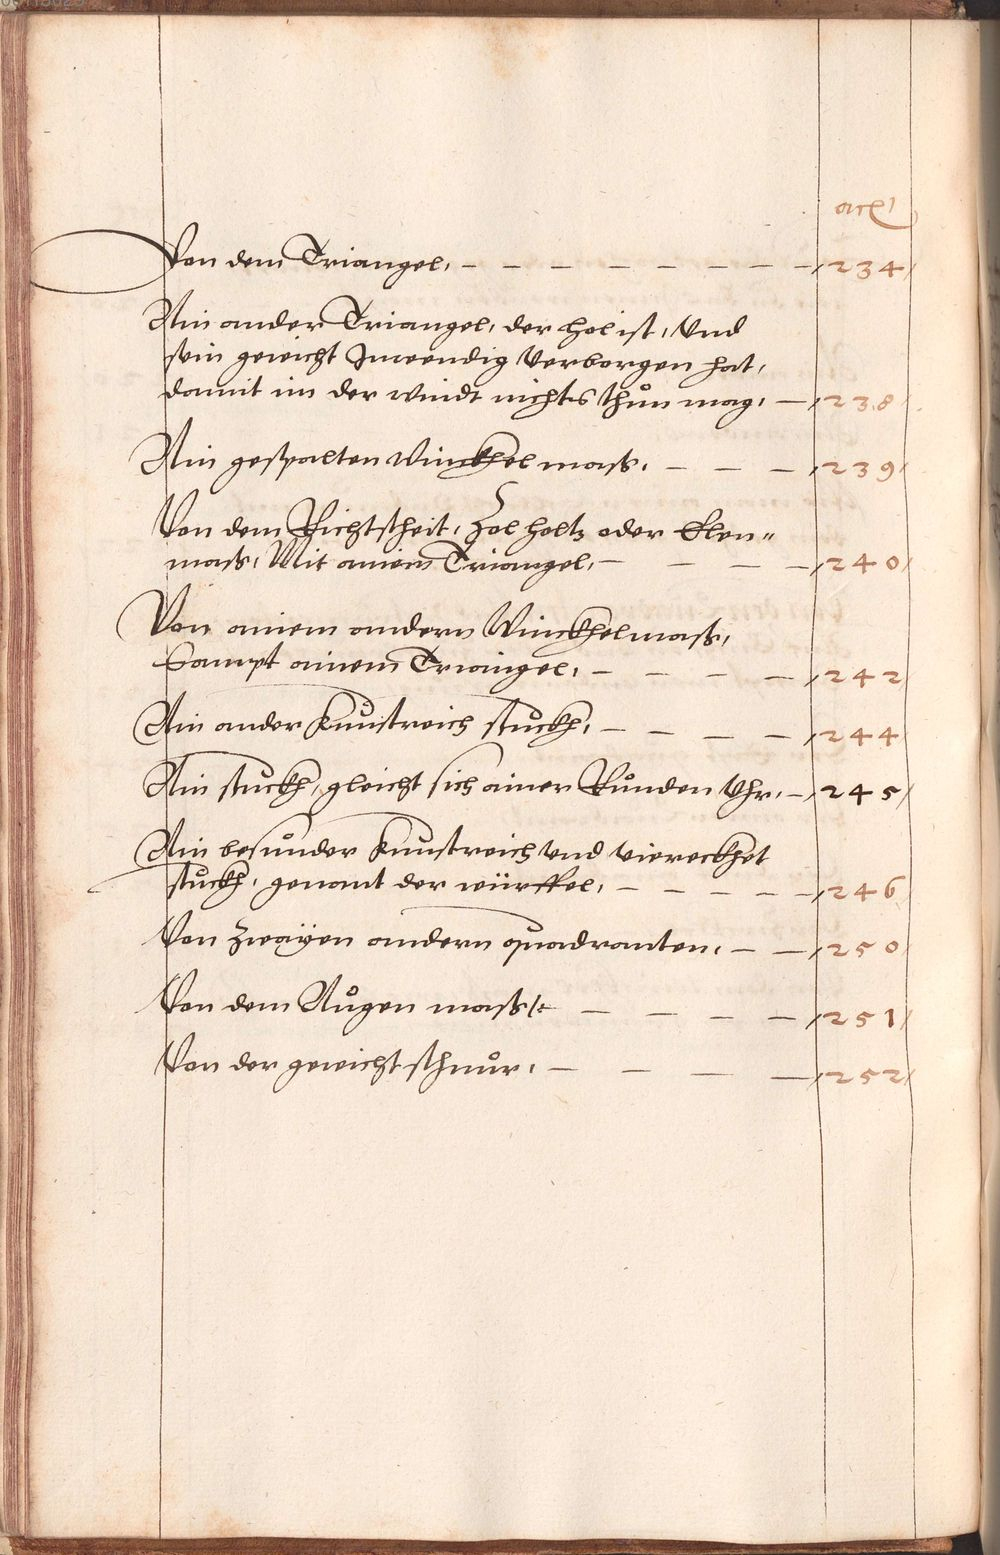 Von dem Triangel, – – – – – – – – 234
Ain ander Triangel, der hol ist, Und
sein gewicht Inwendig Verborgen hat,
damit im der windt nichts thůn mag, – 238
Ain gespalten Winckhel mass, – – – 239
Von dem Richtscheit, Zol holtz oder Elen=
mass, Mit ainem Triangel, – – – – 240
Von ainem andern Winckhelmass,
Sampt ainem Triangel, – – – – 242
Ain ander kunstreich stuckh, – – – – 244
Ain stuckh, gleicht sich ainer Růnden Uhr, – 245
Ain besůnder kunstreich und viereckhet
stuckh, genant der würffel, – – – – – 246
Von Zwayen andern quadranten, – – 250
Von dem Aůgen mass – – – – 251
Von der gewicht schnůr, – – – – 252